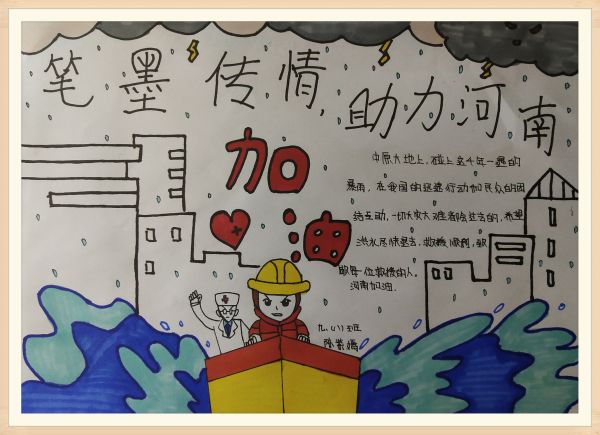 笔墨传情，助力河南
加油
中原大地上，碰上这千年一遇的
暴雨，在我国的迅速行动和民众的团
结互助，一切大灾大难都会过去的，希望
洪水尽快退去，救援顺利，致
敬每一位救援的人，
河南加油.
九.(八)班